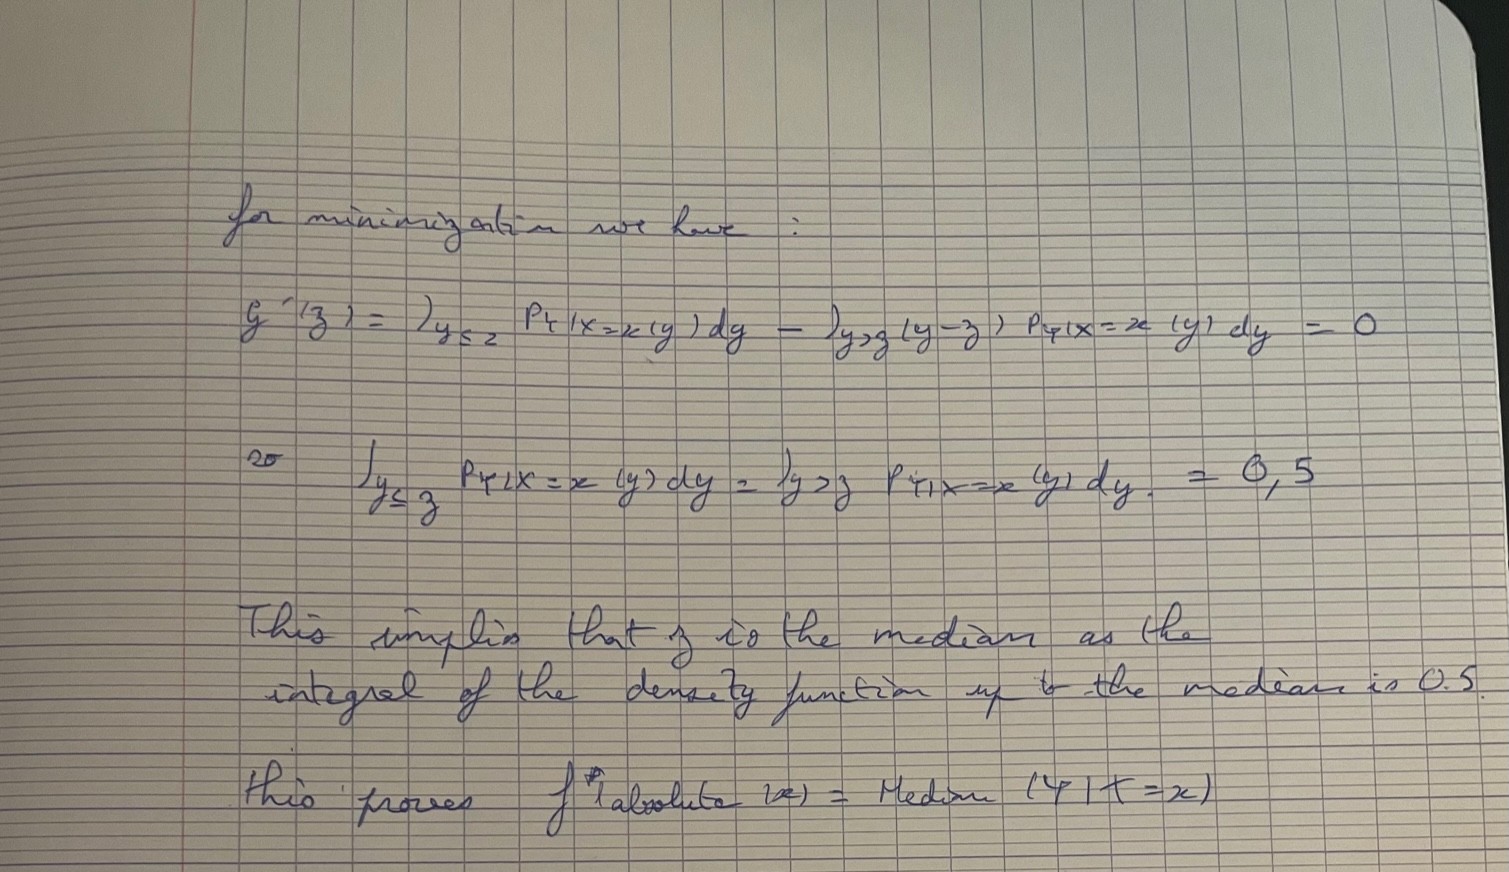 for minimization we have :
g'(z) = ∫y≤z PY|X=x(y) dy − ∫y>z (y−z) PY|X=x (y) dy = 0
so ∫y≤z PY|X=x (y) dy = ∫y>z PY|X=x (y) dy. = 0,5
This implies that z is the median as the
integral of the density function up to the median is 0.5.
this proves f* absolute (x) = Median (Y|X=x)